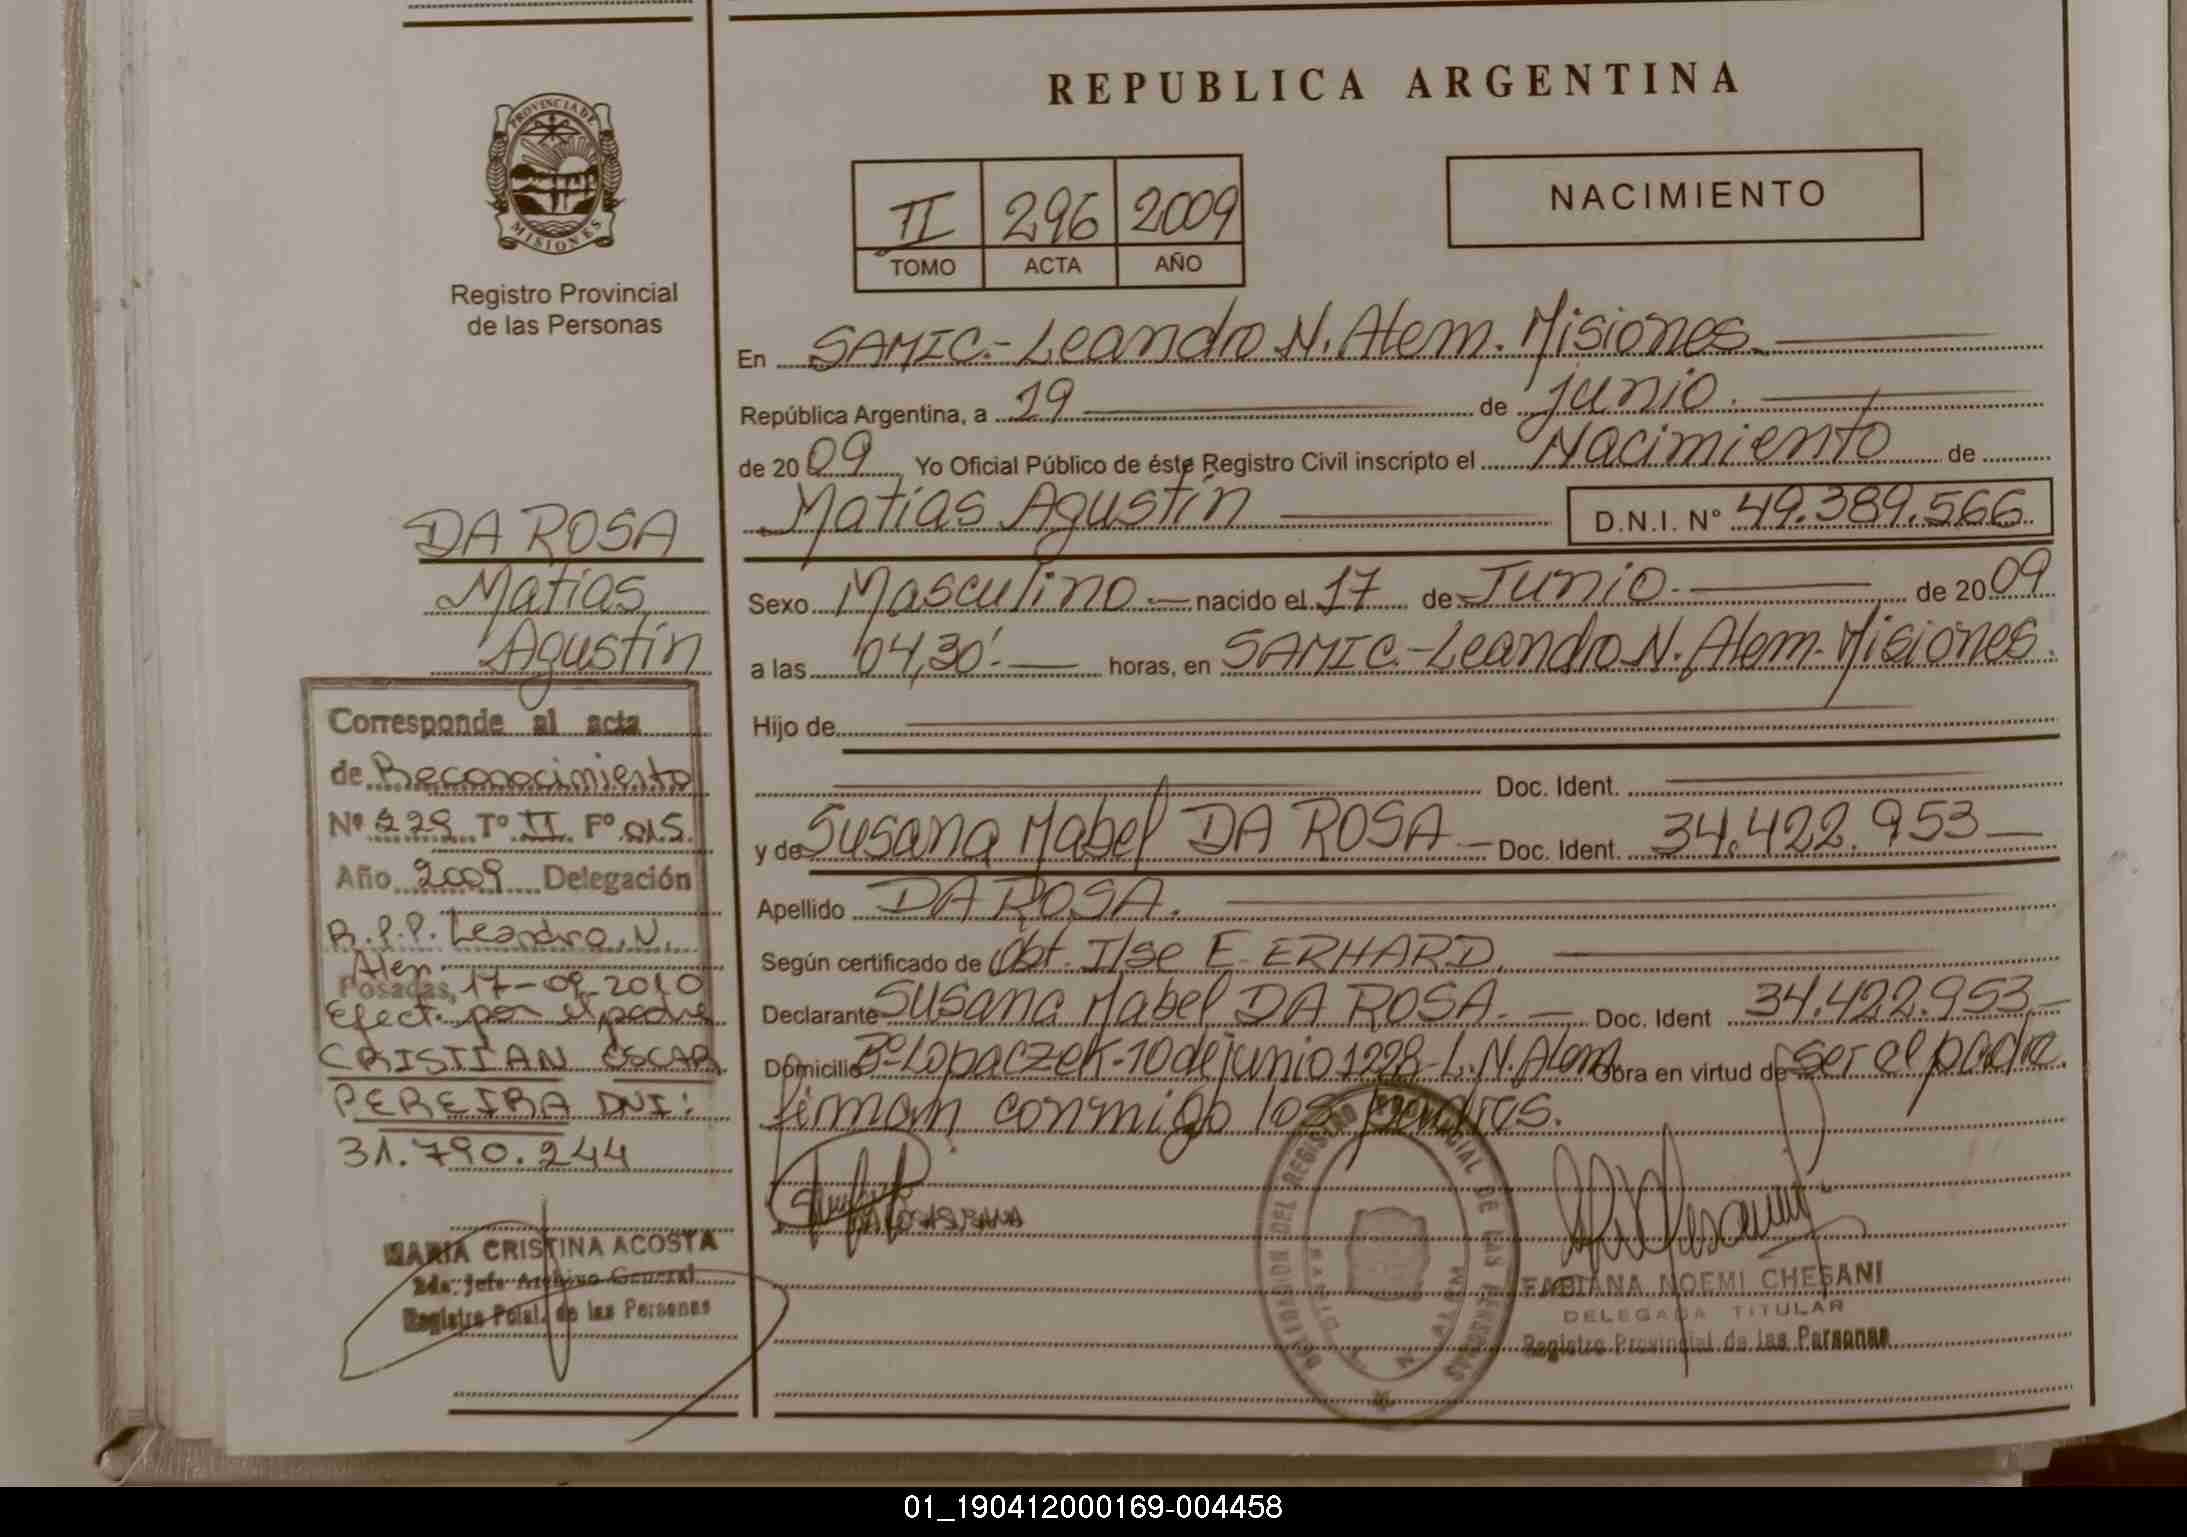 REPUBLICA ARGENTINA
PROVINCIA DE
MISIONES
Registro Provincial
de las Personas
II 296 2009
TOMO ACTA AÑO
NACIMIENTO
En SAMIC.-Leandro N. Alem. Misiones
República Argentina, a 19 de junio.
de 2009 Yo Oficial Público de éste Registro Civil inscripto el Nacimiento de
Matías Agustín D.N.I. Nº 49.389.566
Sexo Masculino nacido el 17 de Junio. de 2009
a las 04,30'. horas, en SAMIC.-Leandro N. Alem. Misiones.
Hijo de
Doc. Ident.
y de Susana Mabel DA ROSA Doc. Ident. 34.422.953
Apellido DA ROSA.
Según certificado de Obt. Ilse E. ERHARD.
Declarante Susana Mabel DA ROSA. Doc. Ident 34.422.953
Domicilio Bº Lopaczek-10 de junio 1228-L.N.Alem Obra en virtud de ser el padre.
firman conmigo los padres.
DA ROSA
Matías
Agustín
Corresponde al acta
de Reconocimiento
Nº 229 Tº II Fº 015
Año 2009 Delegación
R.P.P. Leandro N.
Alem
Posadas, 17-09-2010
Efect. por el padre
CRISTIAN OSCAR
PEREIRA DNI:
31.790.244
MARIA CRISTINA ACOSTA
2da. Jefe Archivo General
Registro Pcial. de las Personas
DELEGACION DEL REGISTRO PROVINCIAL DE LAS PERSONAS
L. N. ALEM
FABIANA NOEMI CHESANI
DELEGADA TITULAR
Registro Provincial de las Personas
01_190412000169-004458